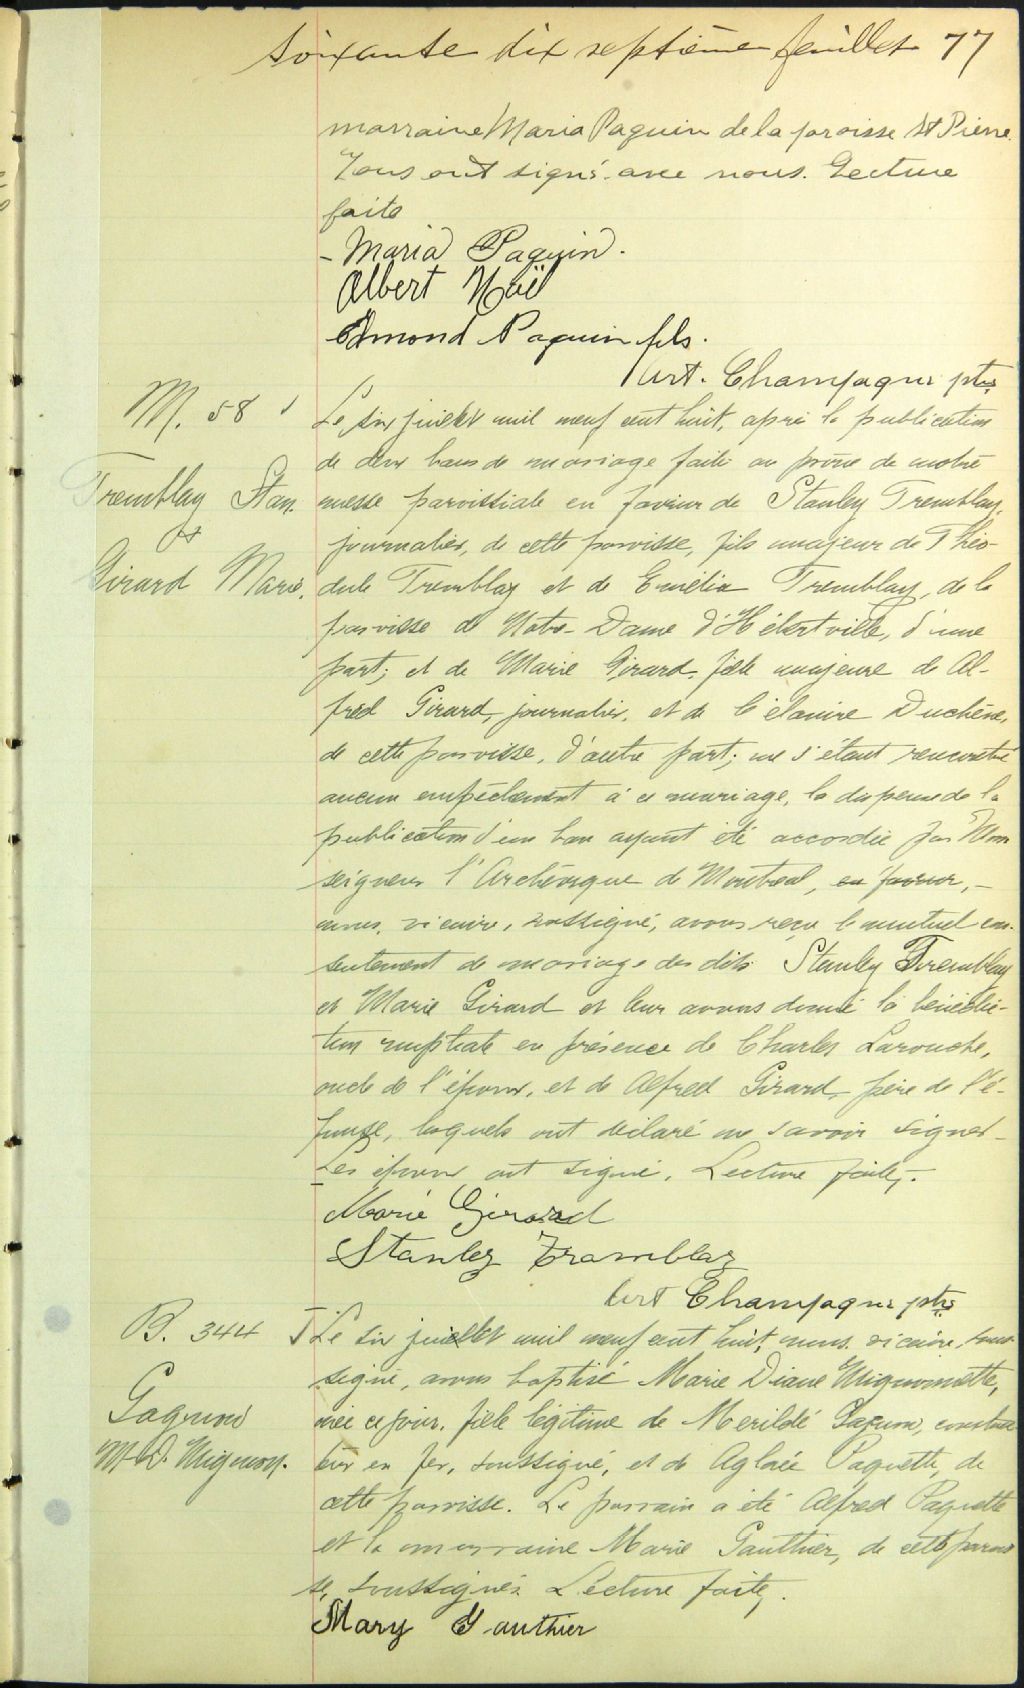 soixante dix septième feuillet 77
marraine Maria Paquin de la paroisse St Pierre.
Tous ont signé avec nous. Lecture
faite
- Maria Paquin.
Albert Noël
Edmond Paquin fils.
Art. Champagne ptre
M. 58
Tremblay Stan.
et
Girard Marie.
Le six juillet mil neuf cent huit, après la publication
de deux bans de mariage faite au prône de notre
messe paroissiale en faveur de Stanley Tremblay,
journalier, de cette paroisse, fils majeur de Théo-
dule Tremblay et de Emélie Tremblay, de la
paroisse de Notre-Dame d'Hébertville, d'une
part; et de Marie Girard, fille majeure de Al-
fred Girard, journalier, et de Célanire Duchêne,
de cette paroisse, d'autre part; ne s'étant rencontré
aucun empêchement à ce mariage, la dispense de la
publication d'un ban ayant été accordée par Mon
seigneur l'Archevêque de Montréal, en faveur, -
nous, vicaire, soussigné, avons reçu le mutuel con-
sentement de mariage des dits Stanley Tremblay
et Marie Girard et leur avons donné la bénédic-
tion nuptiale en présence de Charles Larouche,
oncle de l'époux, et de Alfred Girard, père de l'é-
pouse, lesquels ont déclaré ne savoir signer -
Les époux ont signé. Lecture faite, -
Marie Girard
Stanley Tramblay
Art Champagne ptre
B. 344
Gagnon
M. D. Mignon.
Le six juillet mil neuf cent huit, nous, vicaire, sous-
signé, avons baptisé Marie Diane Mignonnette,
née ce jour, fille légitime de Merildé Gagnon, construc
teur en fer, soussigné, et de Aglaée Paquette, de
cette paroisse. Le parrain a été Alfred Paquette
et la marraine Marie Gauthier, de cette parois
se, soussignés. Lecture faite,
Mary Gauthier